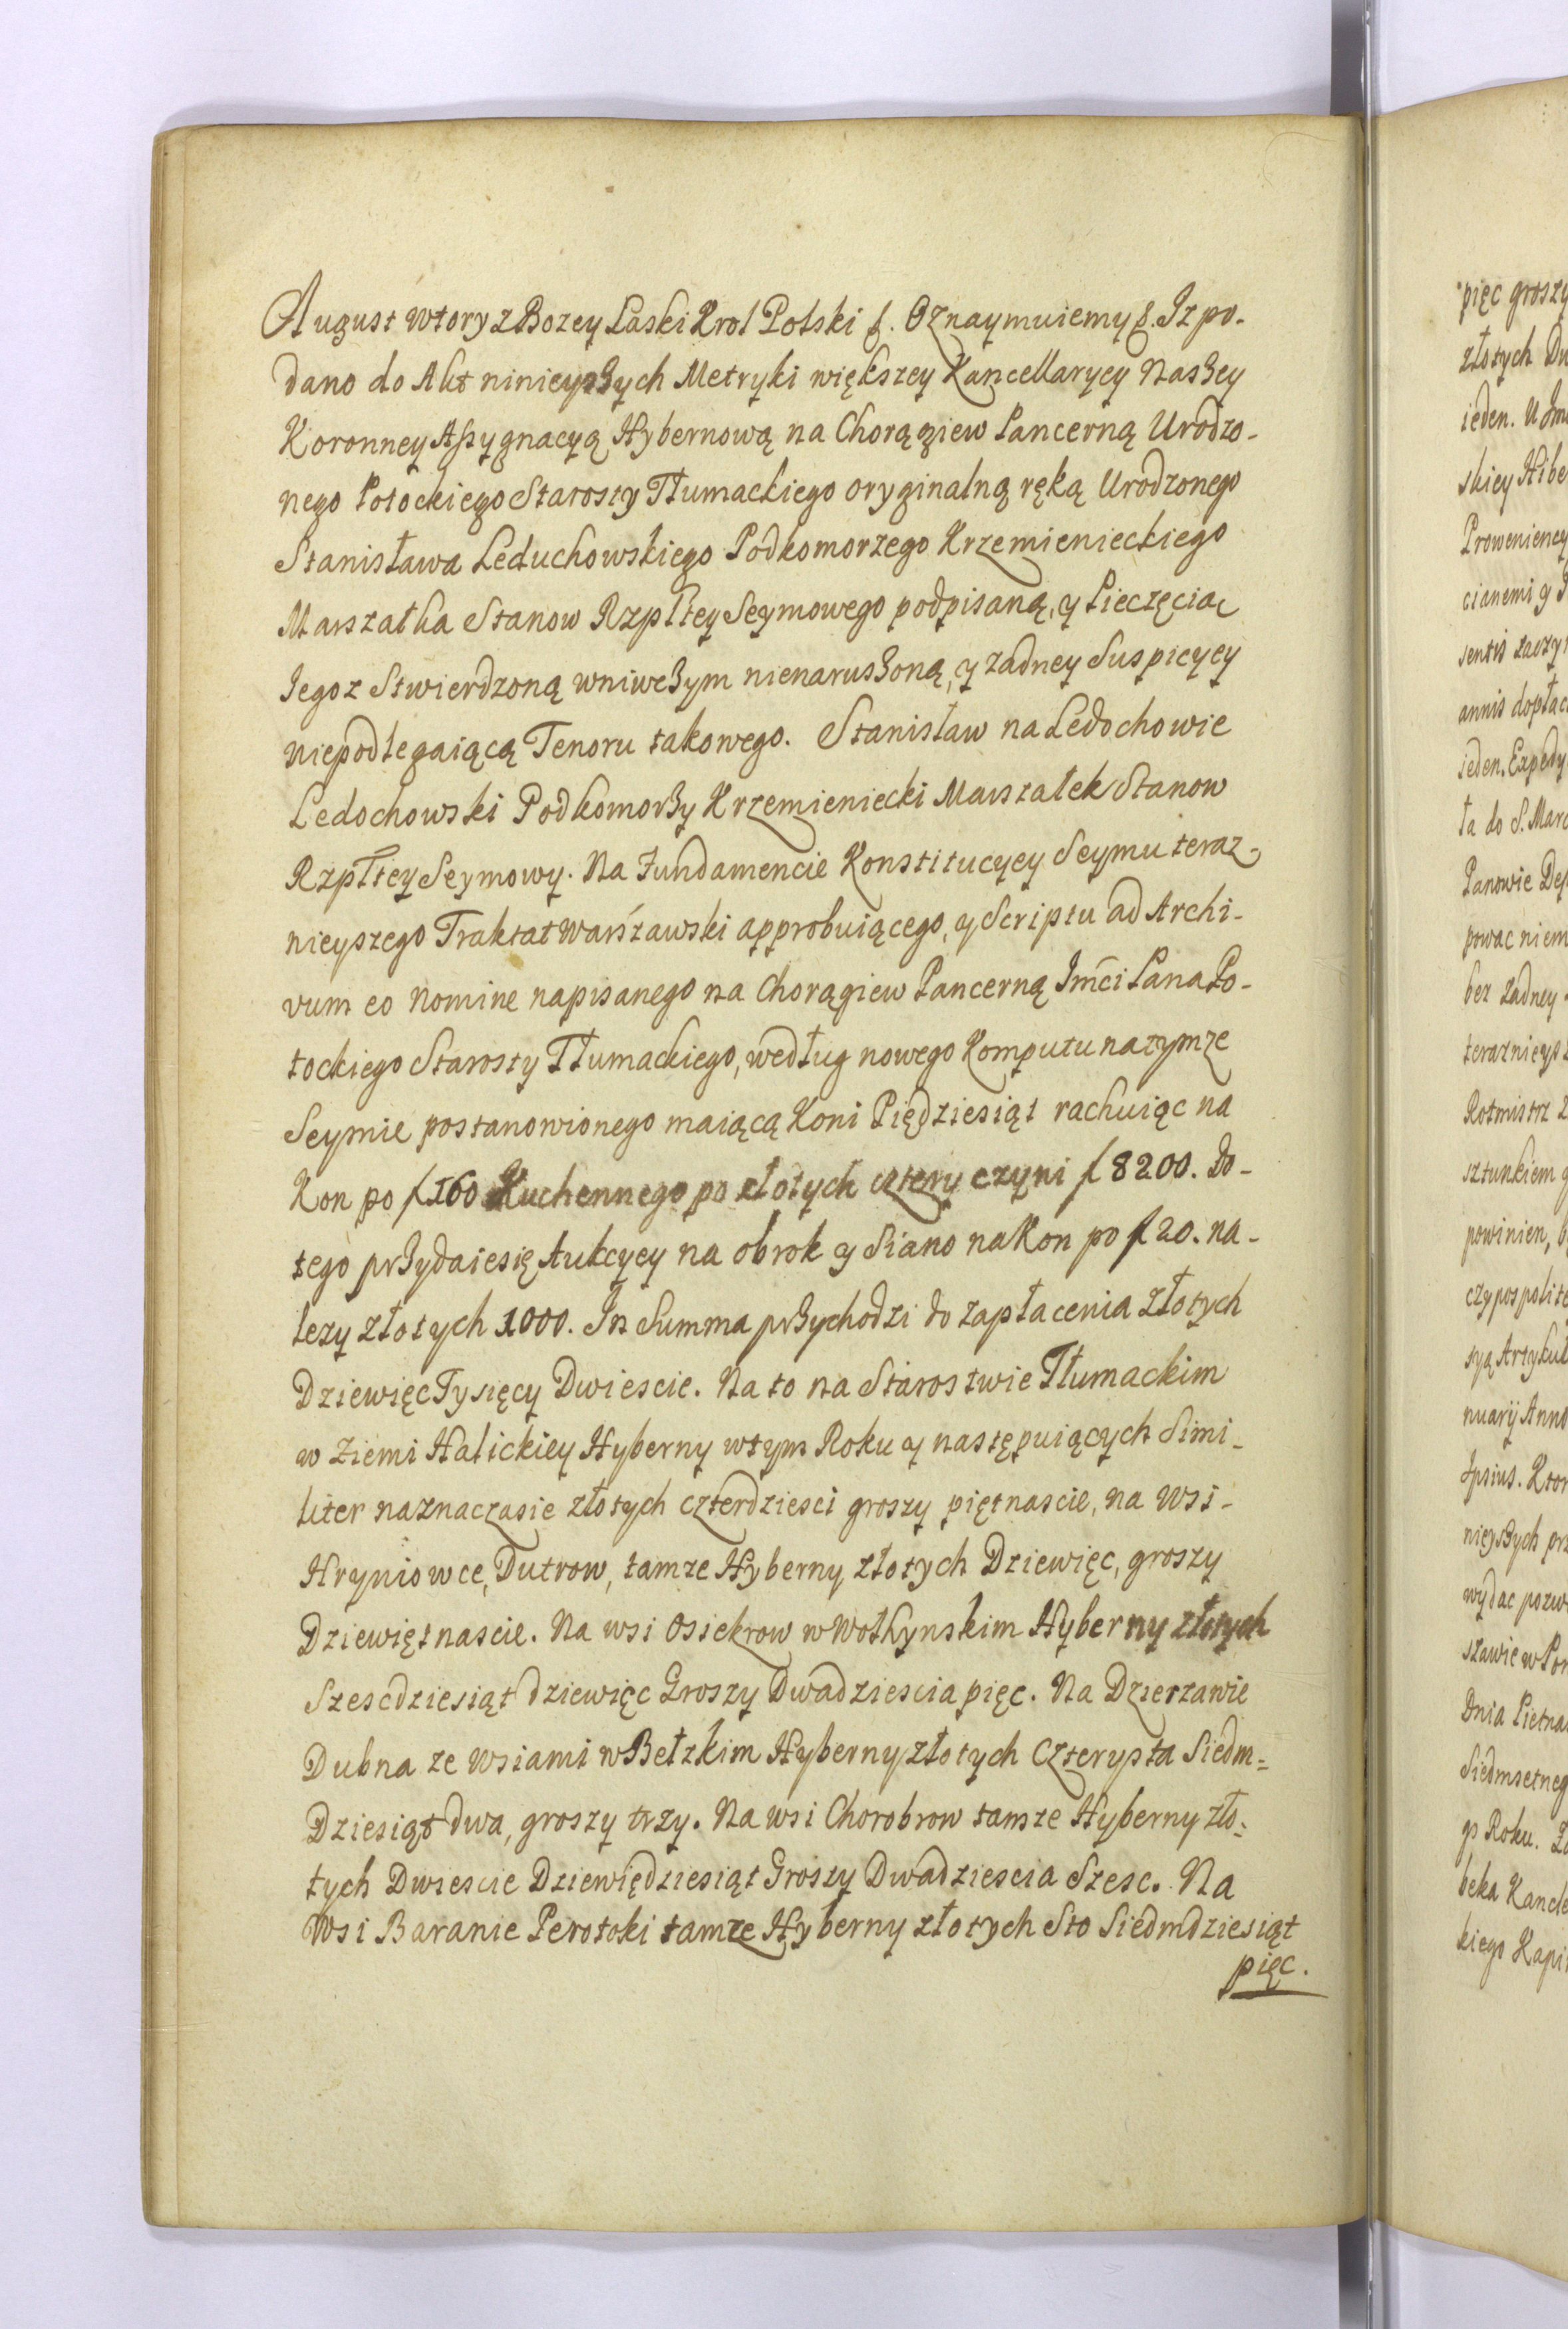 August wtory z Bozey Łaski Krol Polski &. Oznaymuiemy &. Iz po-
dano do Akt ninieyszych Metryki większey Kancellaryey Naszey
Koronney Assygnacyą Hybernową na Chorągiew Pancerną Urodzo-
nego Potockiego Starosty Tłumackiego oryginalną ręką Urodzonego
Stanisława Leduchowskiego Podkomorzego Krzemienieckiego
Marszałka Stanow Rzpltey Seymowego podpisaną, y Pieczęcią
Iegoz Stwierdzoną wniwczym nienaruszoną, y zadney Suspicyey
niepodlegaiącą Tenoru takowego. Stanisław na Ledochowie
Ledochowski Podkomorzy Krzemieniecki Marszałek Stanow
Rzpltey Seymowy. Na Fundamencie Konstitucyey Seymu teraz-
nieyszego Traktat Warszawski approbuiącego, y Scriptu ad Archi-
vum eo nomine napisanego na Chorągiew Pancerną Jmci Pana Po-
tockiego Starosty Tłumackiego, według nowego Komputu natymze
Seymie postanowionego maiącą Koni Piędziesiąt rachuiąc na
Kon po f 160 Kuchennego po złotych cztery czyni f 8200. Do-
tego przydaiesię Aukcyey na obrok y Siano na Kon po f 20. na-
lezy złotych 1000. In Summa przychodzi do zapłacenia złotych
Dziewięc Tysięcy Dwiescie. Na to na Starostwie Tłumackim
w Ziemi Halickiey Hyberny wtym Roku y następuiących Simi-
liter naznaczasie złotych czterdziesci groszy piętnascie, na wsi-
Hryniowce, Dutrow, tamze Hyberny złotych Dziewięc, groszy
Dziewiętnascie. Na wsi Osiekrow w Wołhynskim Hyberny złotych
Szescdziesiąt dziewięc Groszy Dwadziescia pięc. Na Dzierzawie
Dubna ze wsiami w Bełzkim Hyberny złotych Czterysta Siedm-
Dziesiąt dwa, groszy trzy. Na wsi Chorobrow tamze Hyberny zło-
tych Dwiescie Dziewiędziesiąt Groszy Dwadziescia Szesc. Na
Wsi Baranie Perotoki tamze Hyberny złotych Sto Siedmdziesiąt
pięc.